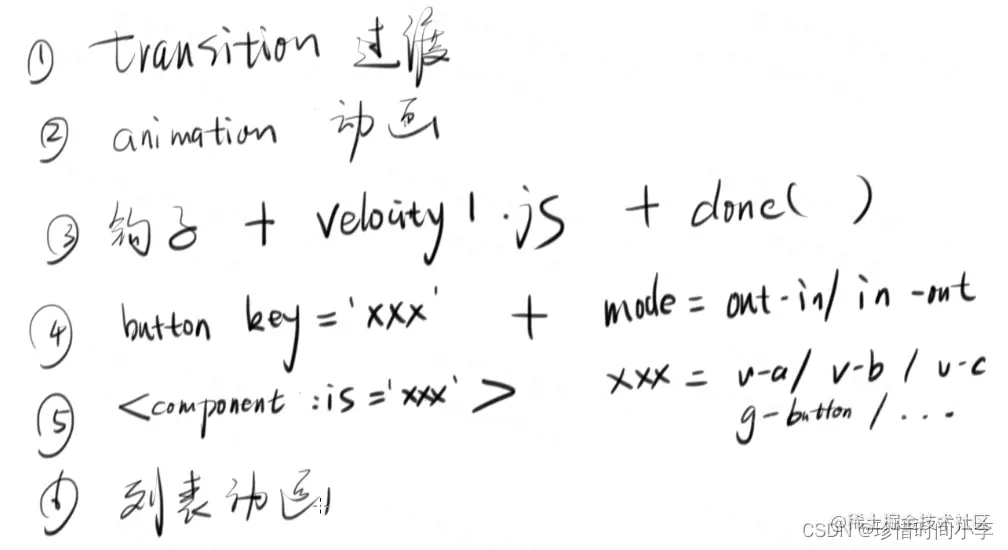 ① transition 过渡
② animation 动画
③ 钩子 + velocity.js + done( )
④ button key='xxx' + mode = out-in/ in-out
⑤ <component :is='xxx'> xxx = v-a/ v-b / v-c
g-button / ...
⑥ 列表动画
@稀土掘金技术社区
CSDN @珍惜时间小李